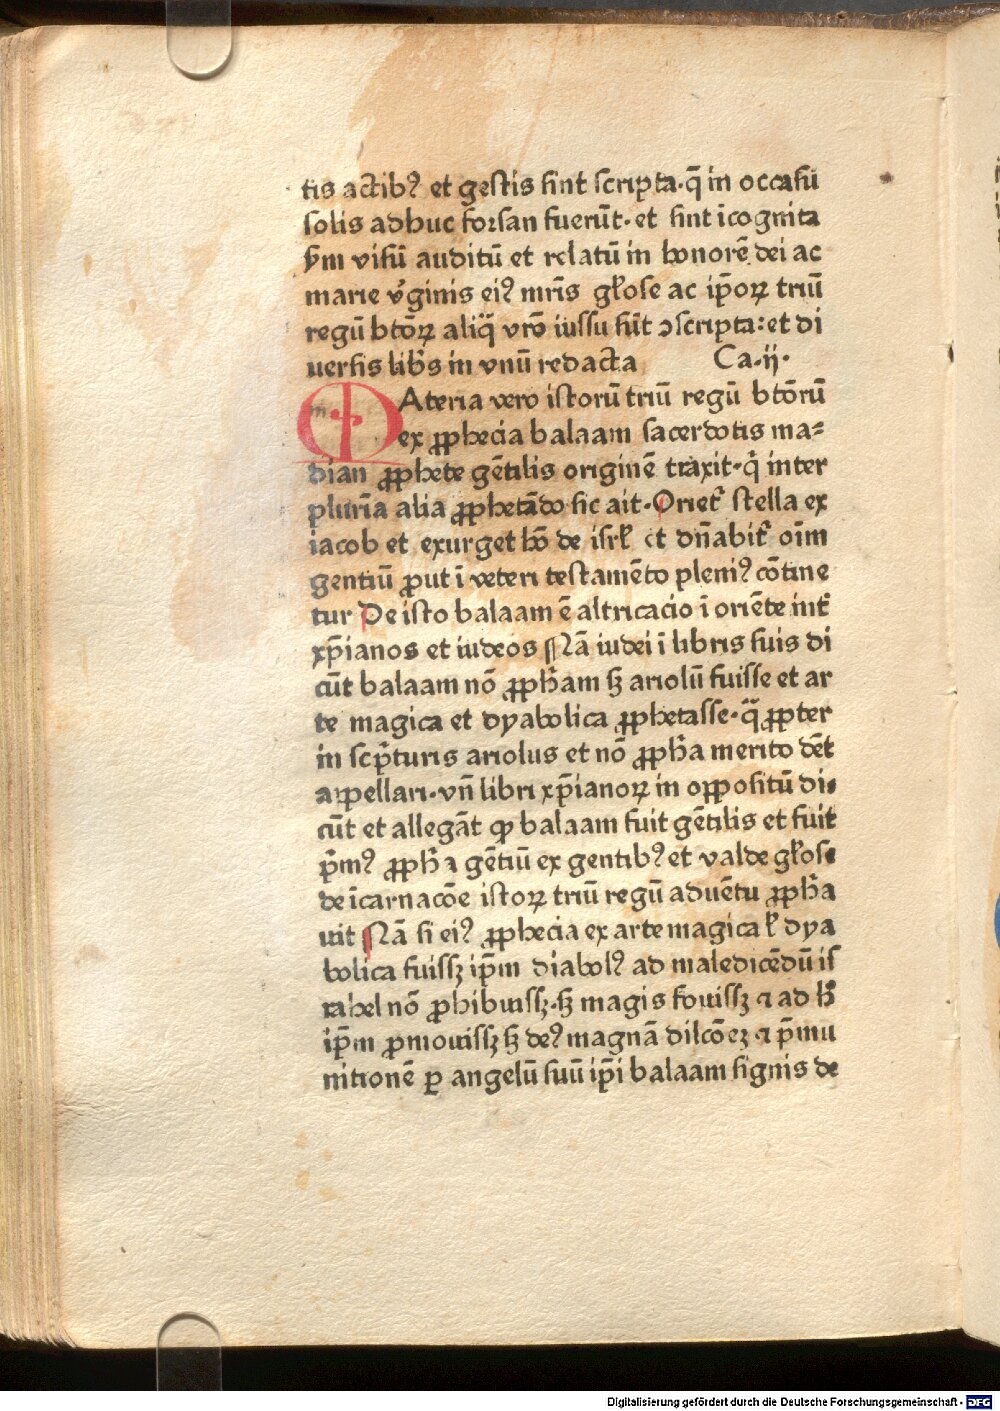 tis actibꝰ et gestis sint scripta·q̄ in occasū
solis adhuc forsan fuerūt·et sint īcognita
ꝑm visū auditū et relatū in honorē dei ac
marie v̓ginis eiꝰ mr̄is gl̓ose ac ip̄oꝝ triū
regū btōꝝ aliq̄ vr̄o iussu sūt ꝯscripta:et di
uersis libr̄s in vnū redacta Ca·ij·
MAteria vero istorū triū regū btōrū
ex ꝓphecia balaam sacerdotis ma⸗
dian ꝓphete gētilis originē traxit·q̄ inter
plurīa alia ꝓphetādo sic ait·Orief̄ stella ex
iacob et exurget hō de isrl̓ et dn̄abit̓ oīm
gentiū ꝓut ī veteri testamēto pleniꝰ cōtine
tur De isto balaam ē altricacio ī oriēte int̓
xp̄ianos et iudeos Nā iudei ī libris suis di
cūt balaam nō ꝓph̄am sꝫ ariolū fuisse et ar
te magica et dyabolica ꝓphetasse·q̄ ꝓpter
in scp̄turis ariolus et nō ꝓph̄a merito dēt
appellari·vn̄ libri xp̄ianoꝝ in oppositū di⸗
cūt et allegāt ꝙ balaam fuit gētilis et fuit
p̄mꝰ ꝓph̄a gētiū ex gentibꝰ et valde gl̓ose
de īcarnacōe istoꝝ triū regū aduētu ꝓph̄a
uit Nā si eiꝰ ꝓphecia ex arte magica l̓ dya
bolica fuissꝫ ip̄m diabolꝰ ad maledicēdū is
rahel nō ꝓhibuissꝫ·sꝫ magis fouissꝫ ⁊ ad h̄
ip̄m ꝓmouissꝫ sꝫ deꝰ magnā dilcōeꝫ ⁊ p̄mu
nitionē ꝑ angelū suū ip̄i balaam signis de
Digitalisierung gefördert durch die Deutsche Forschungsgemeinschaft - DFG